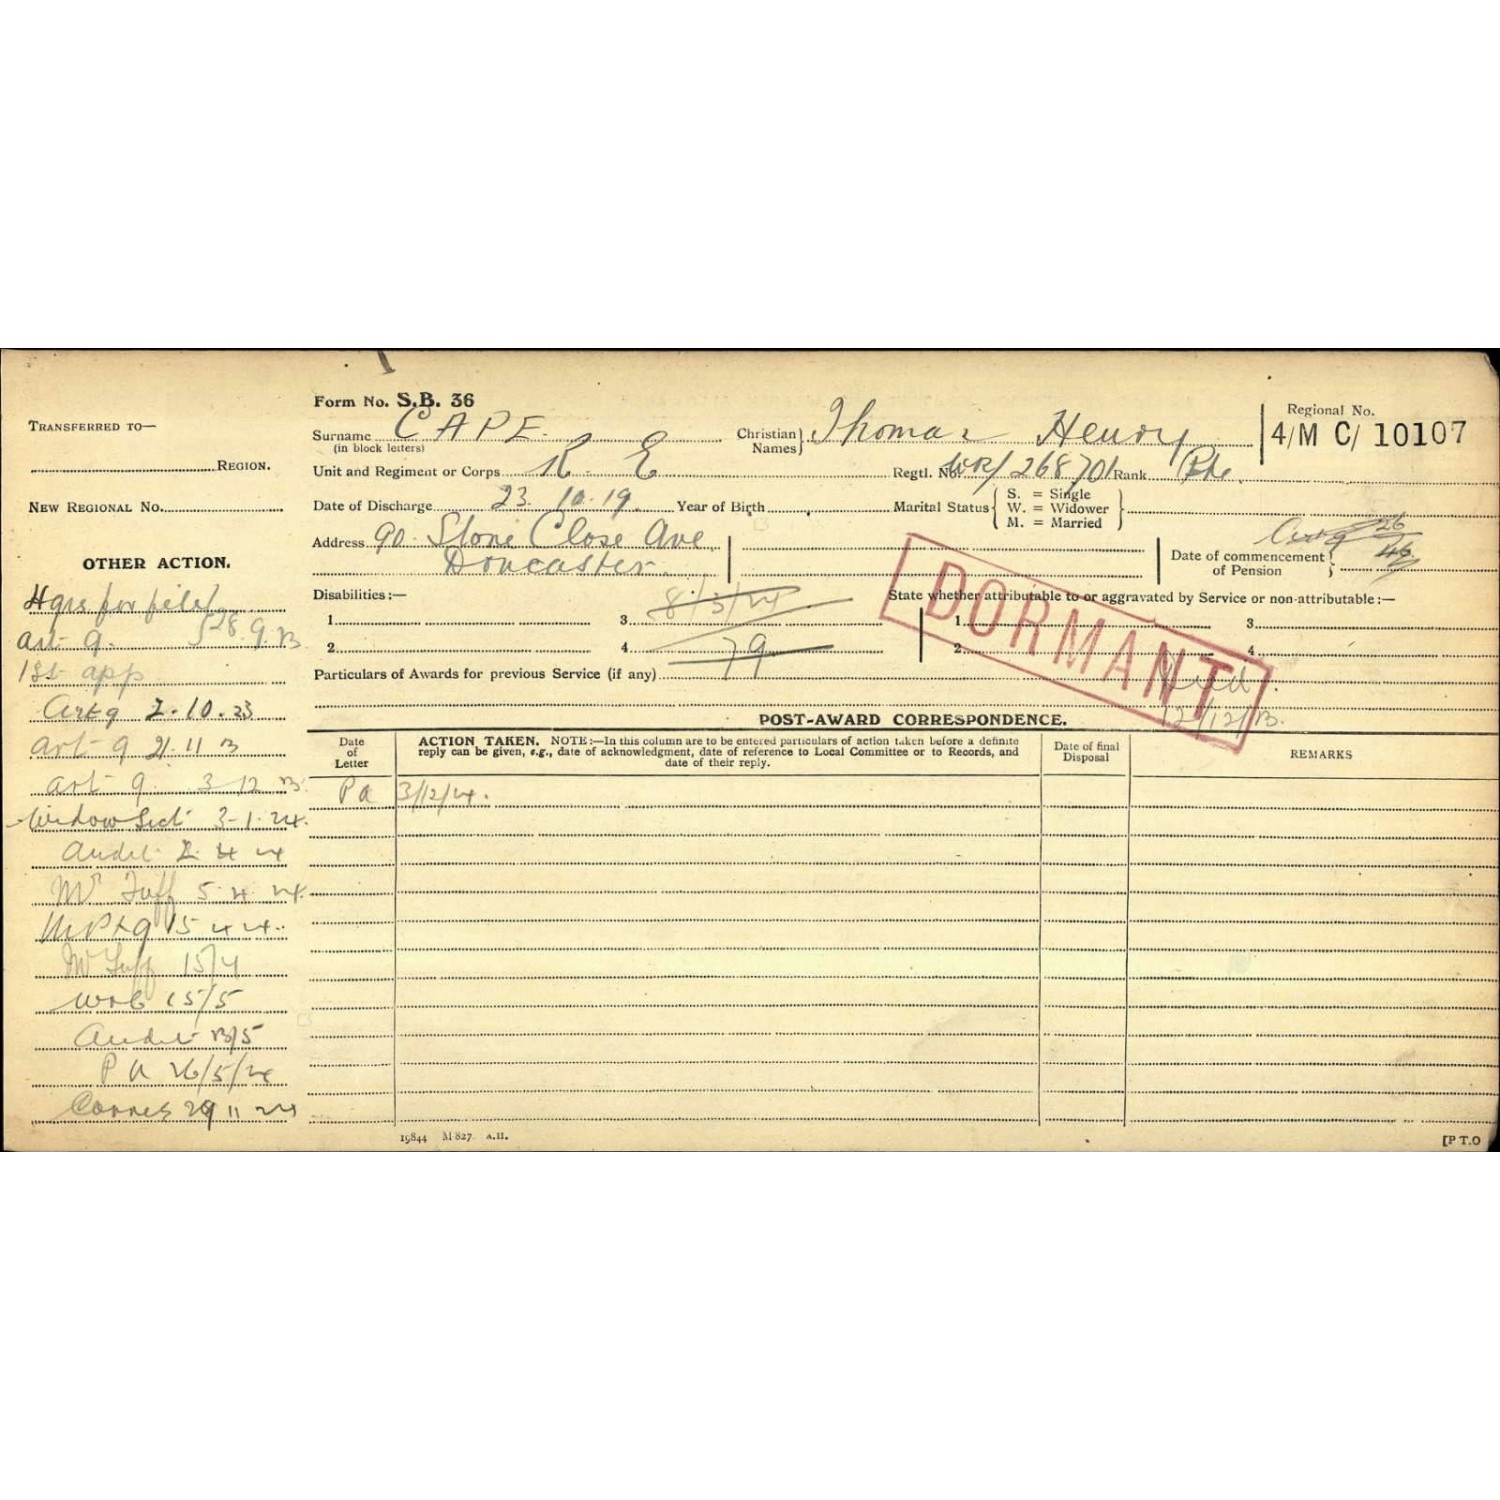 Form No. S.B. 36
TRANSFERRED TO—
REGION.
NEW REGIONAL No.
Surname CAPE.
(in block letters)
Christian Names} Thomas Henry
Regional No.
4/M C/ 10107
Unit and Regiment or Corps R. E
Regtl. No. WR/268701 Rank Pte.
Date of Discharge 23.10.19. Year of Birth
Marital Status { S. = Single
W. = Widower
M. = Married }
Address 90. Stone Close Ave.
Doncaster.
Date of commencement
of Pension }
26
46
Disabilities:—
1. 3.
2. 4.
8/3/24
79
State whether attributable to or aggravated by Service or non-attributable:—
1. 3.
2. 4.
DORMANT
Died.
12/12/23.
Particulars of Awards for previous Service (if any)
OTHER ACTION.
Hqrs for file
art 9. 28.9.23
1st app
Art 9 2.10.23
art 9 21.11 23
art 9. 3 12 23
Widow Sect 3-1-24.
Audit 2 4 24
Mr Tuff 5.4.24.
15 4 24.
Mr Tuff 15/4
15/5
Audit /5
P A 26/5/24
Corres 29 11 24
POST-AWARD CORRESPONDENCE.
Date
of
Letter
ACTION TAKEN. NOTE:—In this column are to be entered particulars of action taken before a definite
reply can be given, e.g., date of acknowledgment, date of reference to Local Committee or to Records, and
date of their reply.
Date of final
Disposal
REMARKS
P A 3/12/24.
19844 M 827. A.H.
[P T.O